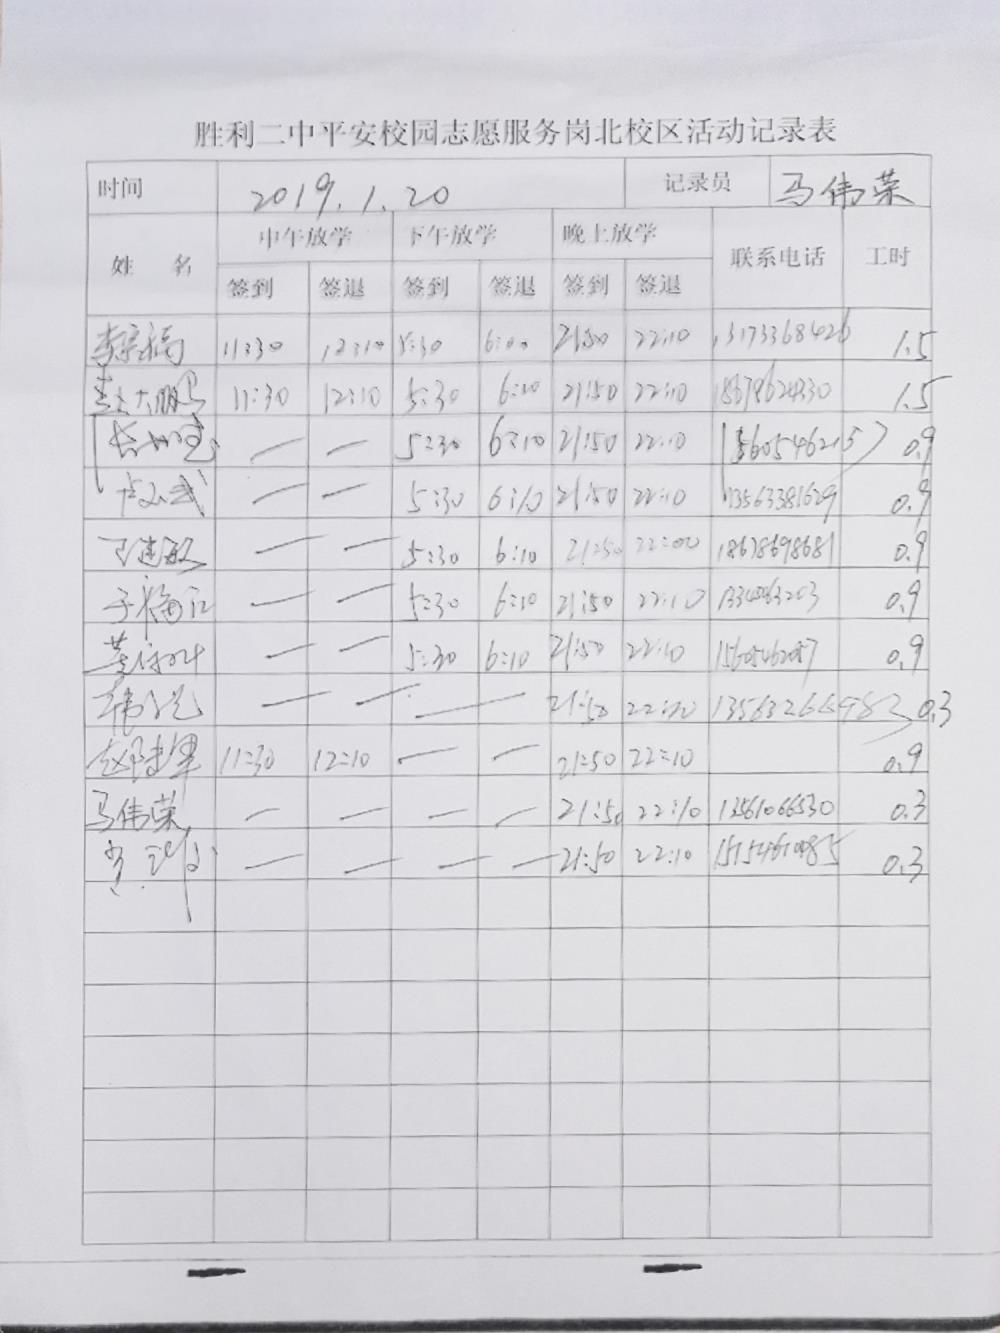 胜利二中平安校园志愿服务岗北校区活动记录表
时间 2019.1.20 记录员 马伟荣
姓 名 中午放学 下午放学 晚上放学 联系电话 工时
签到 签退 签到 签退 签到 签退
11:30 12:10 5:30 6:00 21:50 22:10 13173368426 1.5
11:30 12:10 5:30 6:10 21:50 22:10 18678624330 1.5
— — 5:30 6:10 21:50 22:10 0.9
— — 5:30 6:10 21:50 22:10 13563381629 0.9
王建敏 — — 5:30 6:10 21:50 22:00 18678698681 0.9
于福江 — — 5:30 6:10 21:50 22:10 0.9
— — 5:30 6:10 21:50 22:10 15605462057 0.9
— — — 21:50 22:10 13563266498 0.3
赵建军 11:30 12:10 — — 21:50 22:10 0.9
马伟荣 — — — — 21:50 22:10 13561066530 0.3
— — — — 21:50 22:10 0.3